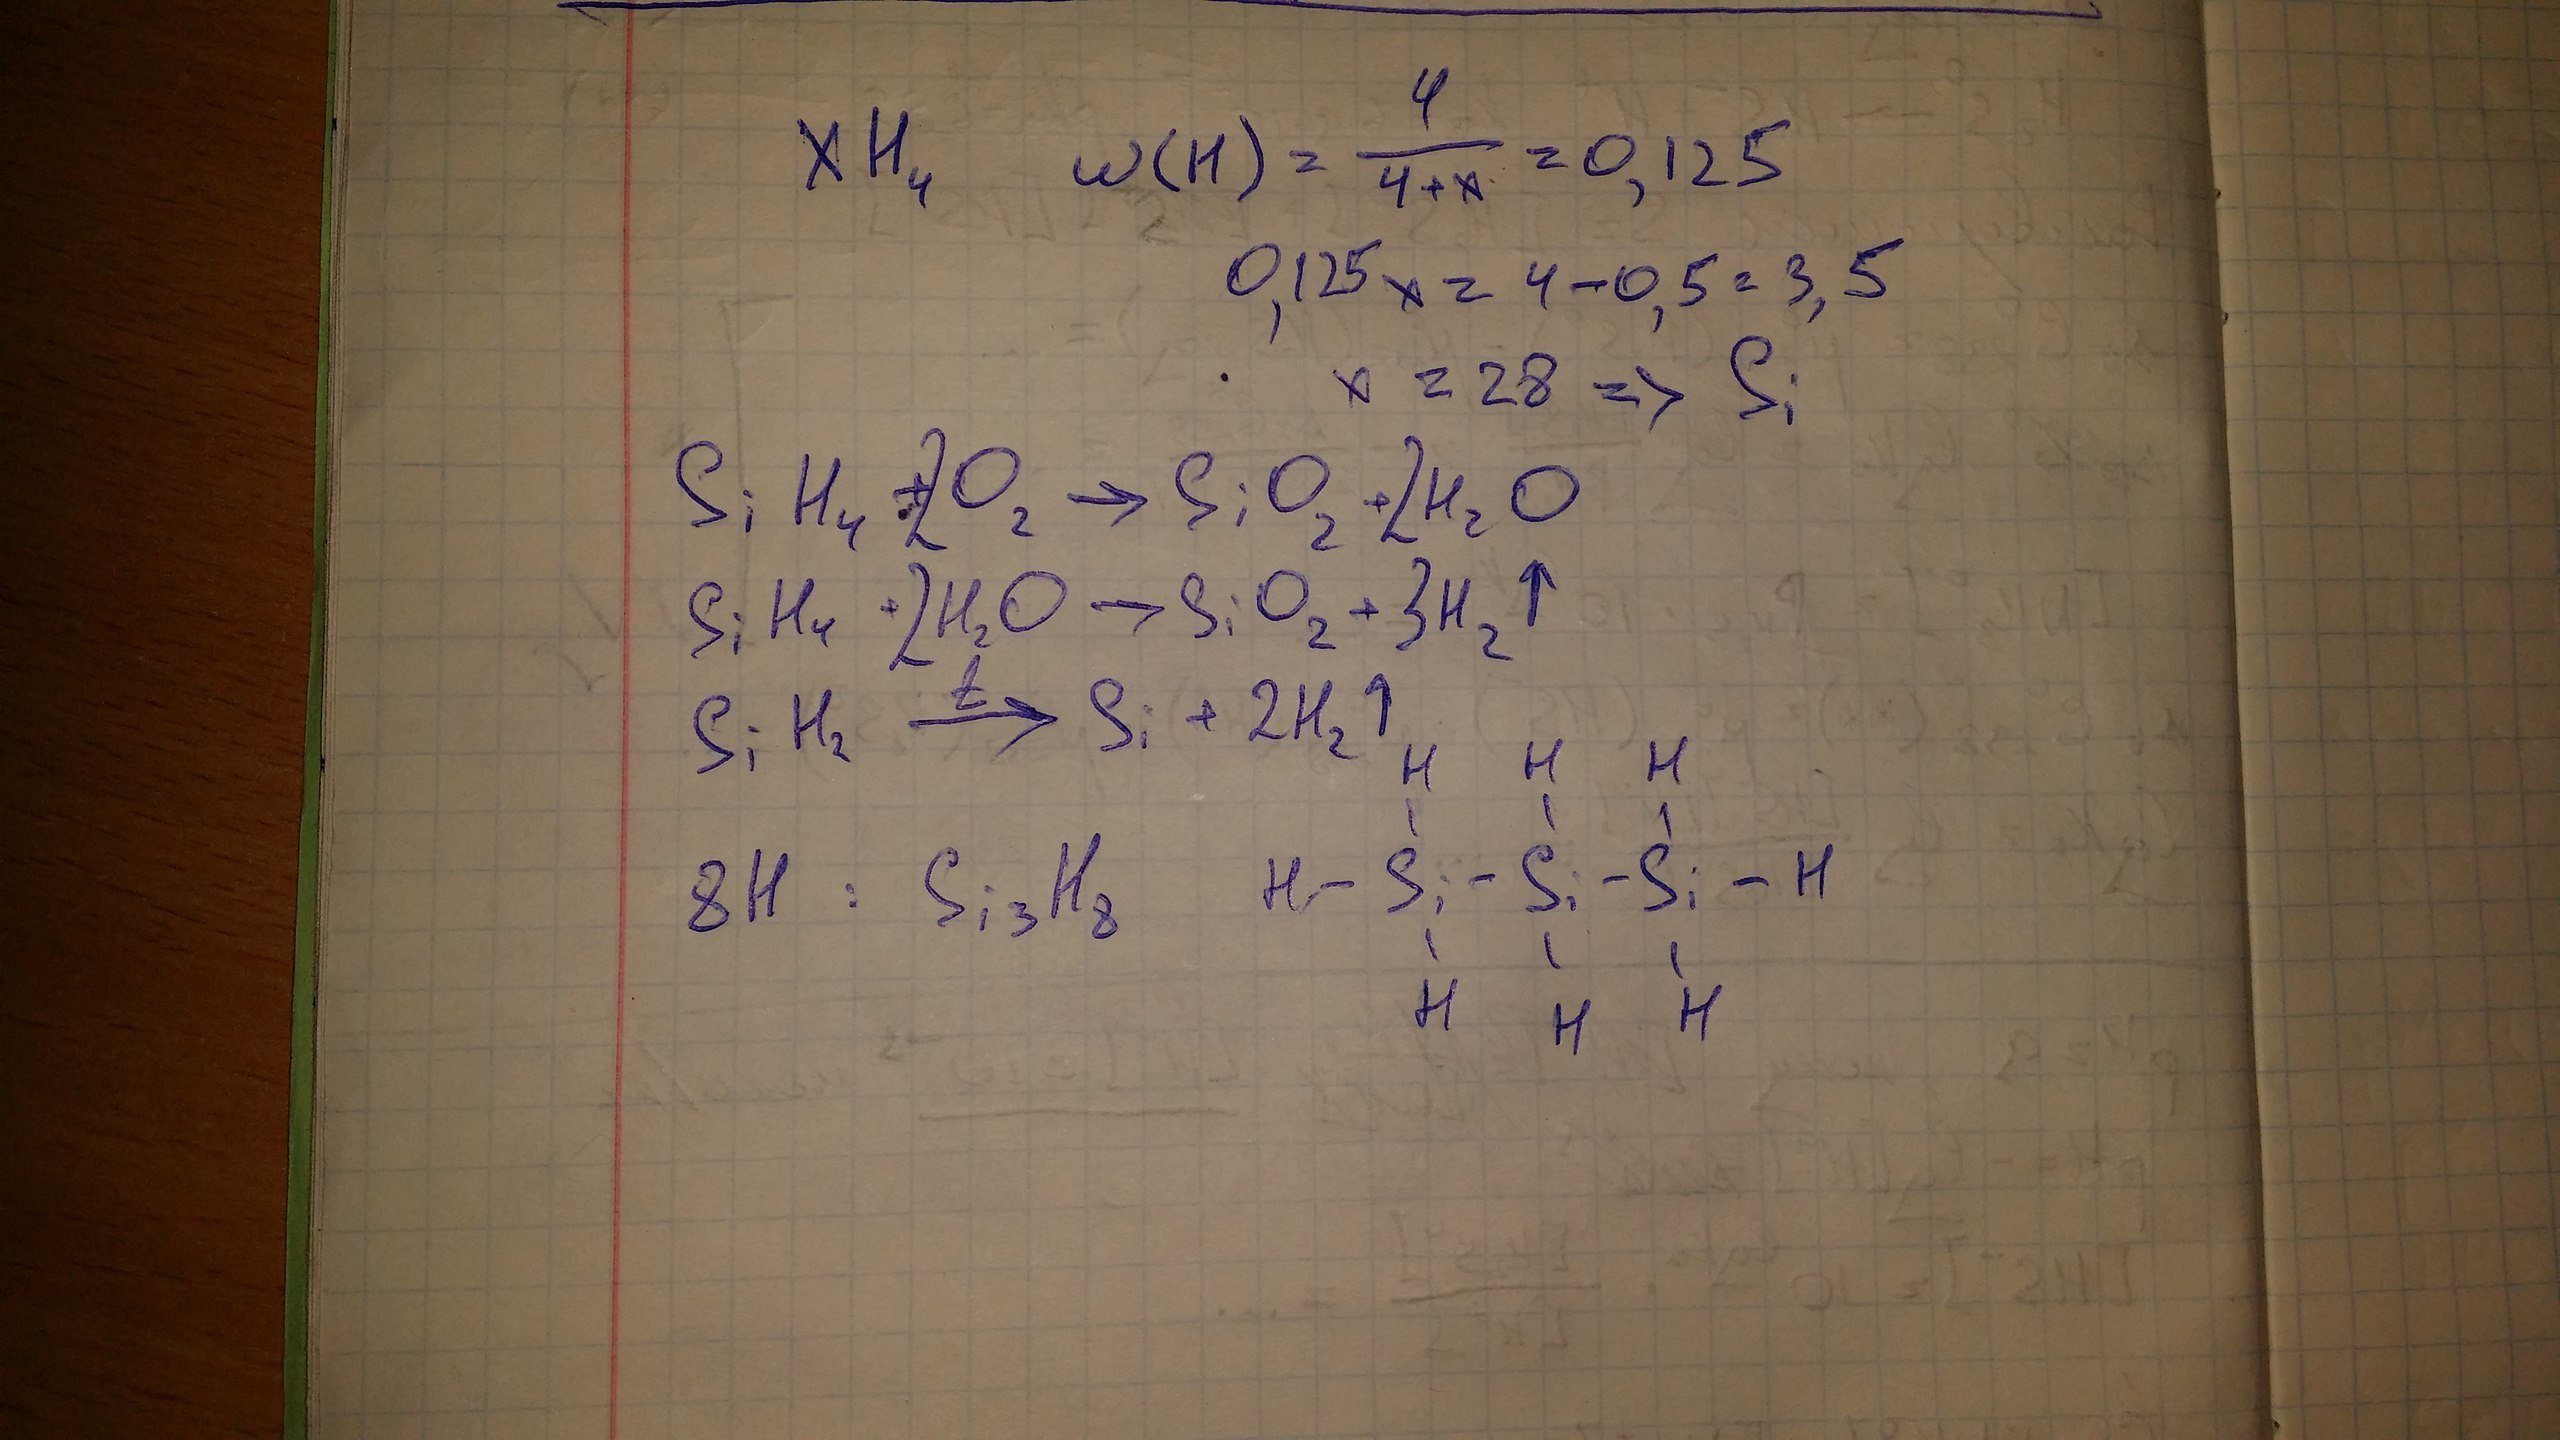 XH₄ ω(H) = 4/(4+x) = 0,125
0,125x = 4-0,5 = 3,5
x = 28 => Si
SiH₄ + 2O₂ → SiO₂ + 2H₂O
SiH₄ + 2H₂O → SiO₂ + 3H₂↑
SiH₂ →(t) Si + 2H₂↑
H H H
8H : Si₃H₈ H-Si-Si-Si-H
H H H